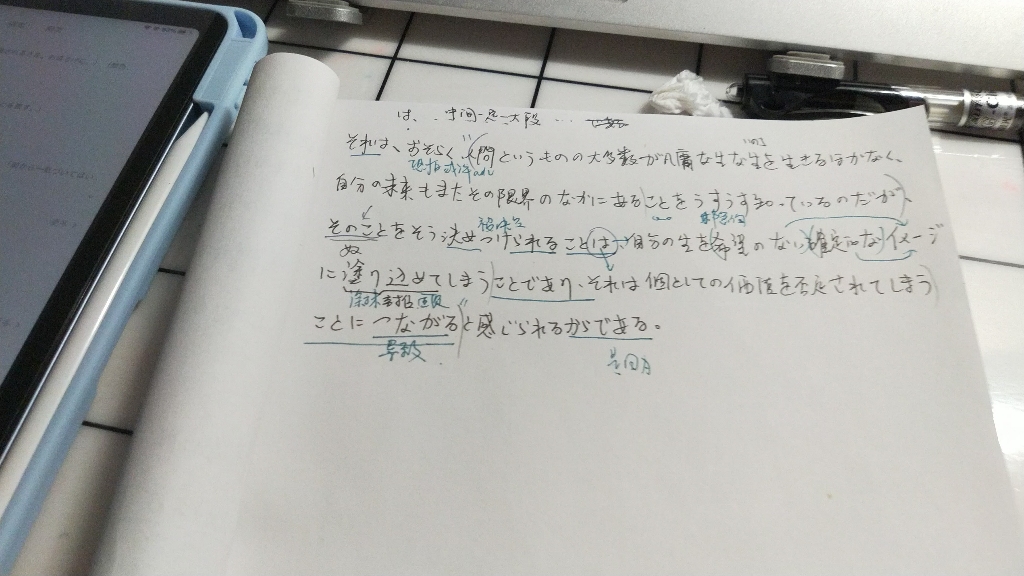 は、
それは、おそらく、人間というものの大多数が凡庸な生な生を生きるほかなく、
いのち
自分の未来もまたその限界のなかにあることをうすうす知っているのだが、
そのことをそう決めつけられることは自分の生を希望のない確定的なイメージ
ぬ
に塗り込めてしまうことであり、それは個としての価値を否定されてしまう
ことにつながると感じられるからである。
导致
是因为